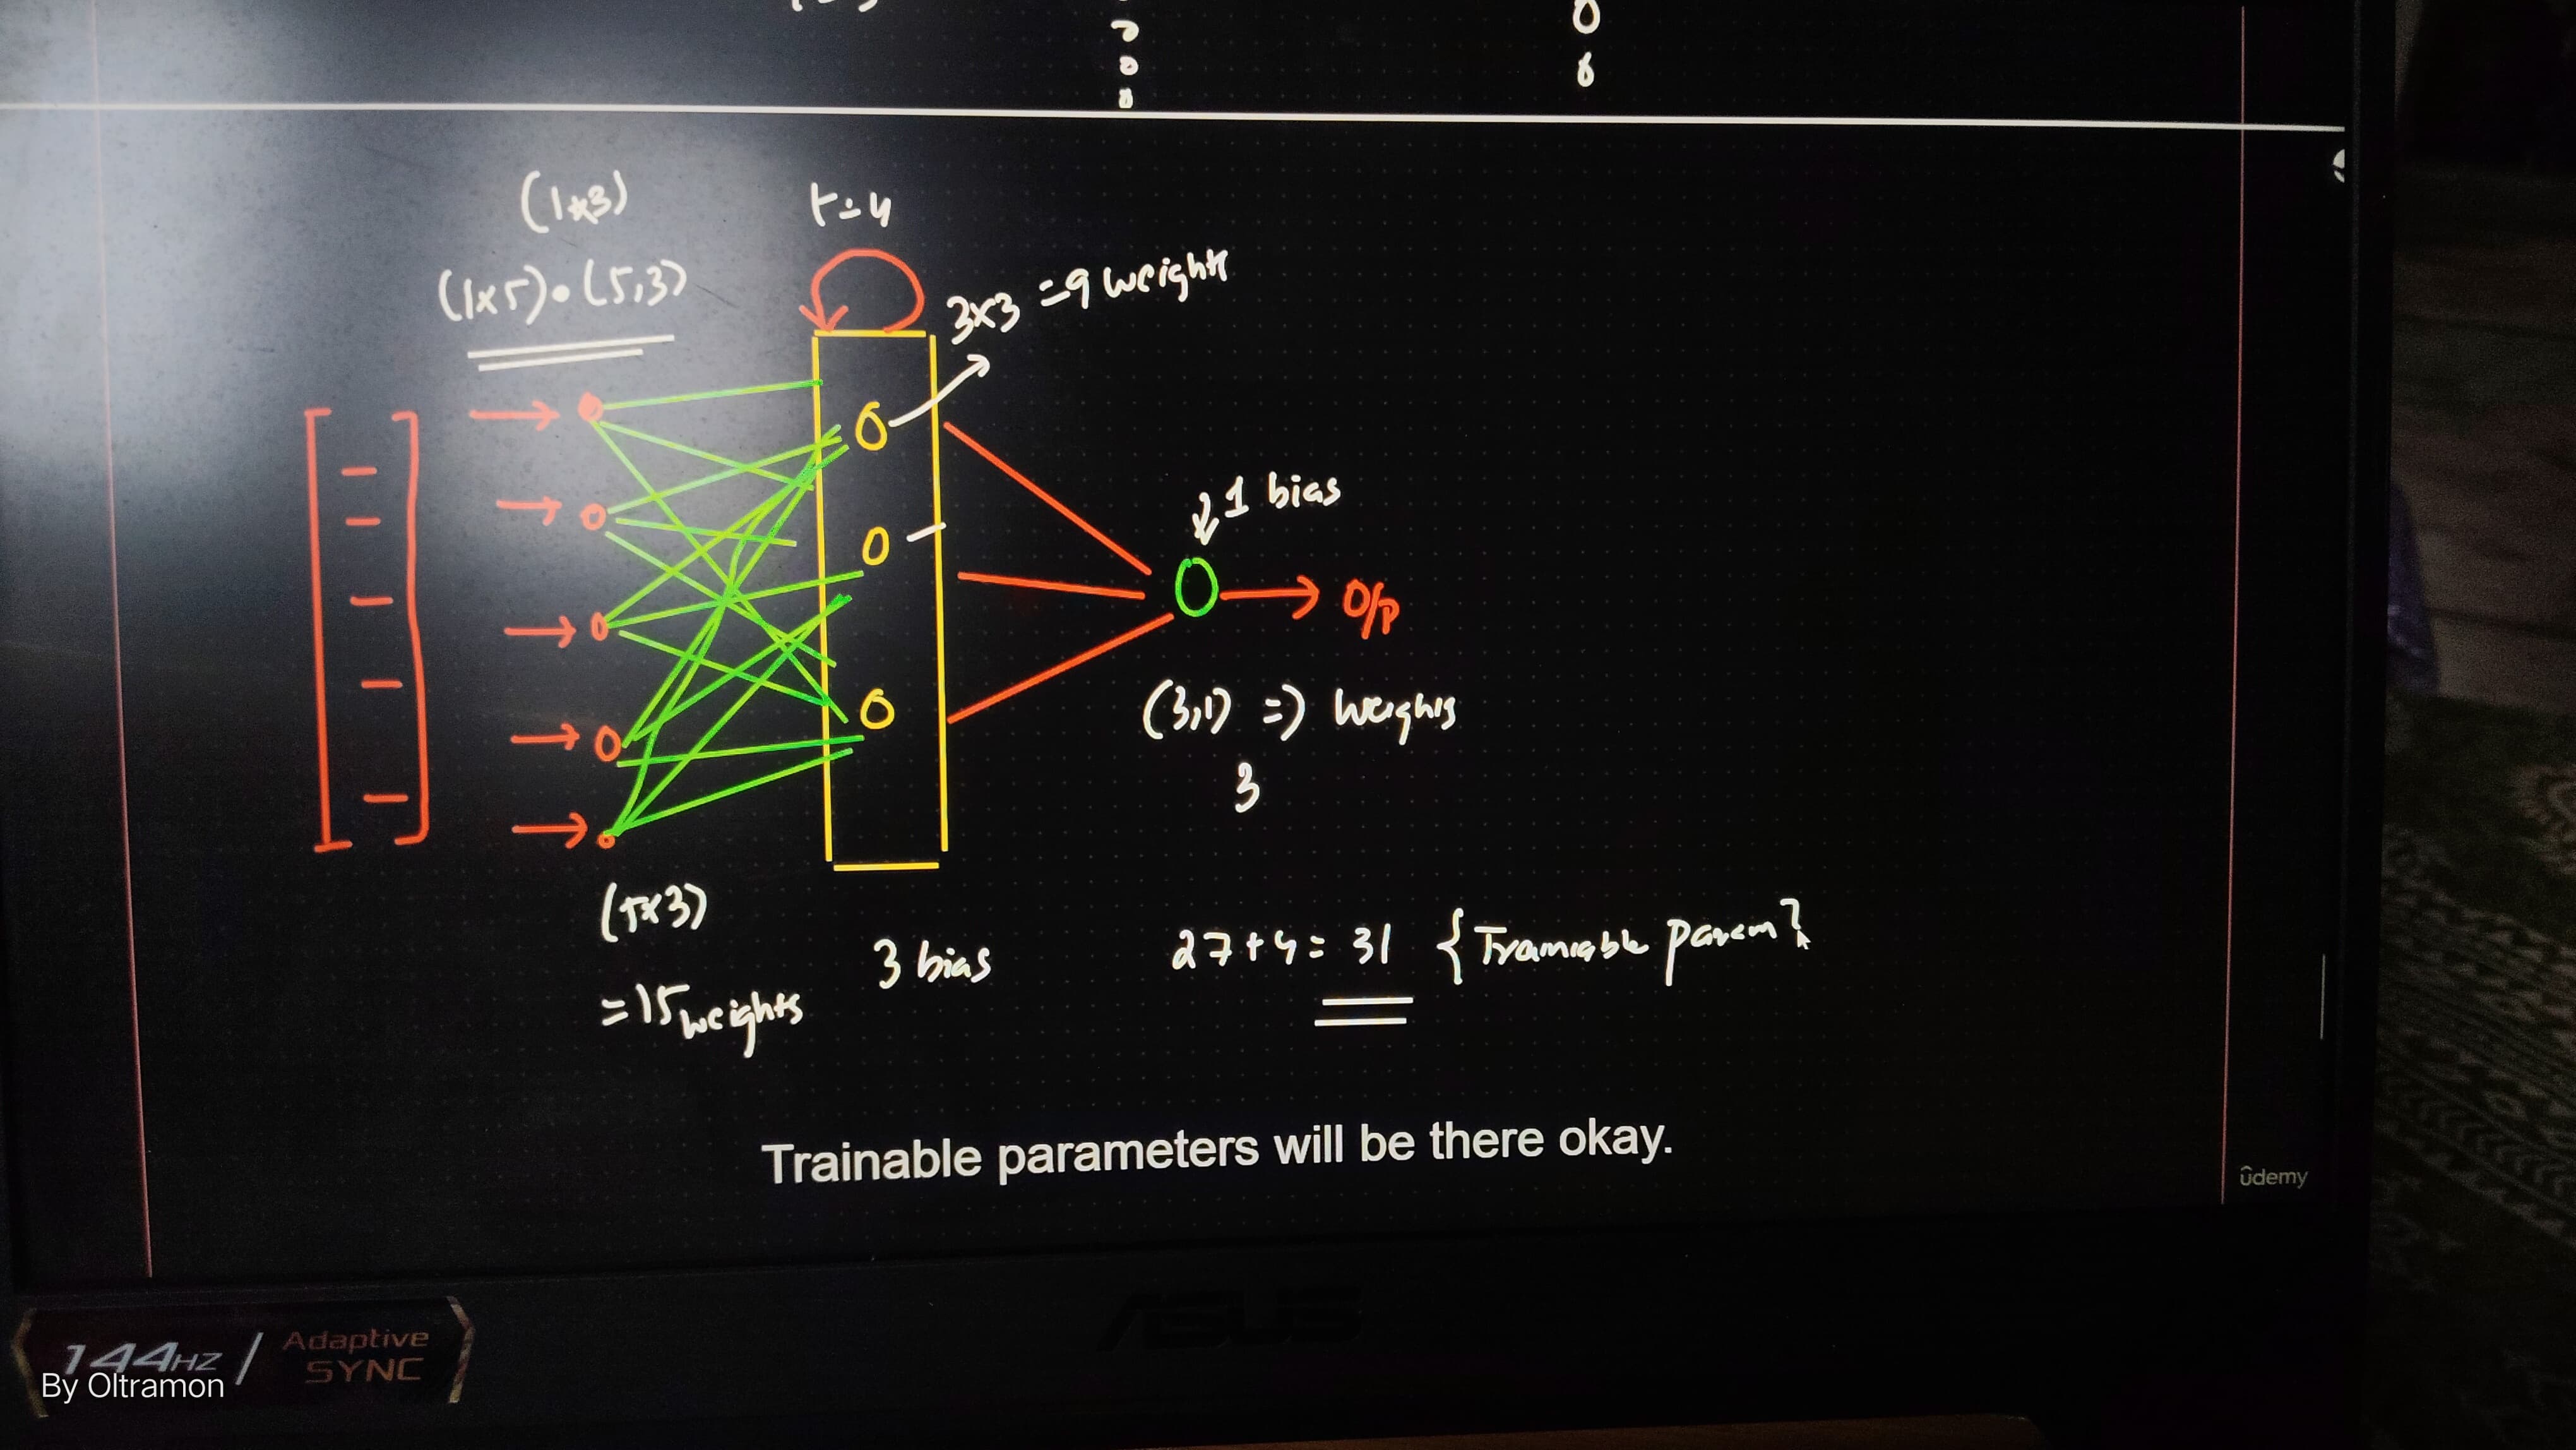 (1x3)
t=4
(1x5)•(5,3)
3x3 =9 weights
1 bias
O/P
(3,1) => Weights
3
(5x3)
=15 weights
3 bias
27+4= 31 {Trainable param}
Trainable parameters will be there okay.
ûdemy
ASUS
144HZ / Adaptive SYNC
By Oltramon